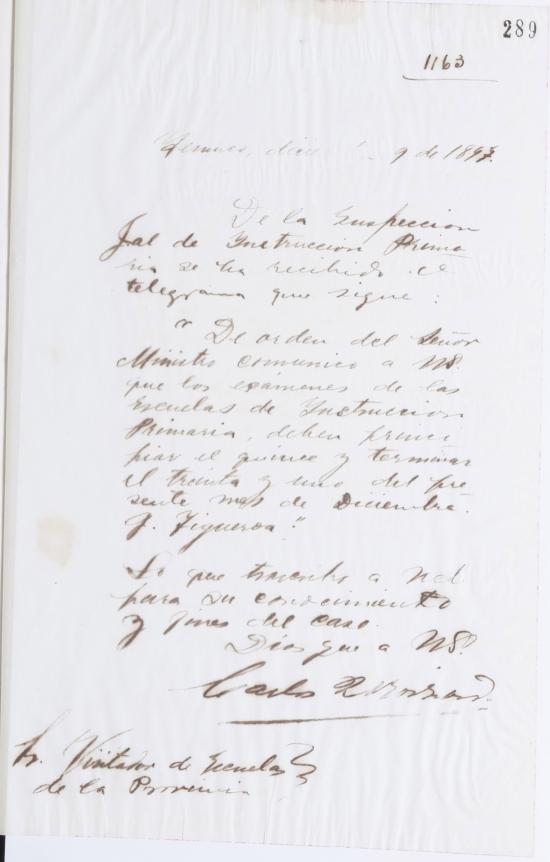 289
1163
Temuco, 9 de 1897.
De la Inspeccion
Jral de Instruccion Prima
ria se ha recibido el
telegrama que sigue:
"De orden del Señor
Ministro comunico a US.
que los exámenes de las
Escuelas de Instruccion
Primaria, deben princi
piar el quince y terminar
el treinta y uno del pre
sente mes de Diciembre.
J. Figueroa."
Lo que trascribo a Ud
para su conocimiento
y fines del caso.
Dios gue a US.
Carlos
Sr. Visitador de Escuelas
de la Provincia